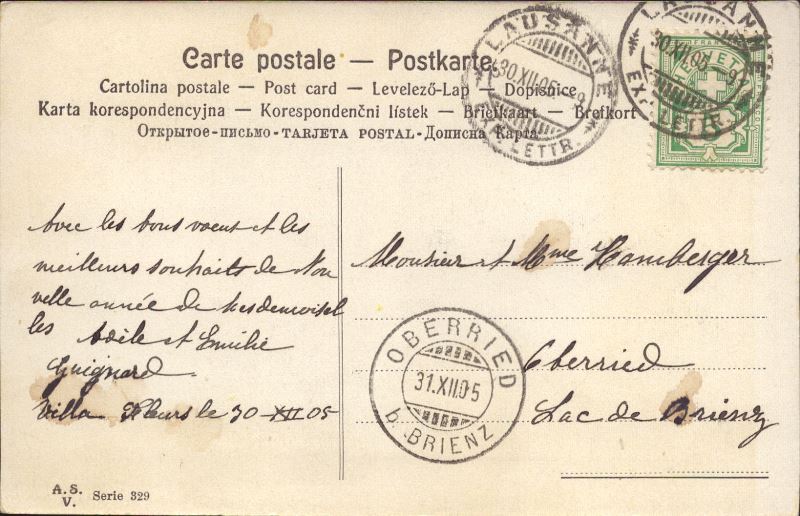 Carte postale — Postkarte
Cartolina postale — Post card — Levelező-Lap — Dopisnice
Karta korespondencyjna — Korespondenční lístek — Briefkaart — Brefkort
Открытое-письмо-TARJETA POSTAL-Дописна Карта
LAUSANNE
30.XII.05
EXP. LETTR.
LAUSANNE
30.XII.05
EXP. LETTR.
HELVETIA
Avec les bons voeux et les
meilleurs souhaits de Nou
velle année de Mesdemoisel
les Adèle et Emilie
Guignard.
Villa Fleurs le 30-XII 05
Monsieur et Mme Hamberger
Oberried
Lac de Brienz
OBERRIED
31.XII.05
b. BRIENZ
A.S.
V.
Serie 329